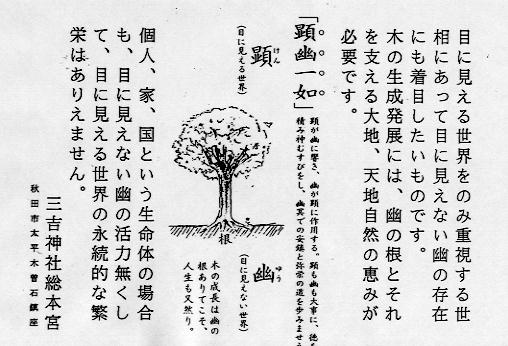 目に見える世界をのみ重視する世
相にあって目に見えない幽の存在
にも着目したいものです。
木の生成発展には、幽の根とそれ
を支える大地、天地自然の恵みが
必要です。
「顕幽一如」
顕が幽に響き、幽が顕に作用する。顕も幽も大事に、徳を
積み神むすびをし、幽冥での安鎮と弥栄の道を歩みませう
顕
けん
(目に見える世界)
根
幽
ゆう
(目に見えない世界)
木の成長は幽の
根ありてこそ、
人生も又然り。
個人、家、国という生命体の場合
も、目に見えない幽の活力無くし
て、目に見える世界の永続的な繁
栄はありえません。
三吉神社総本宮
秋田市太平、木曽石鎮座